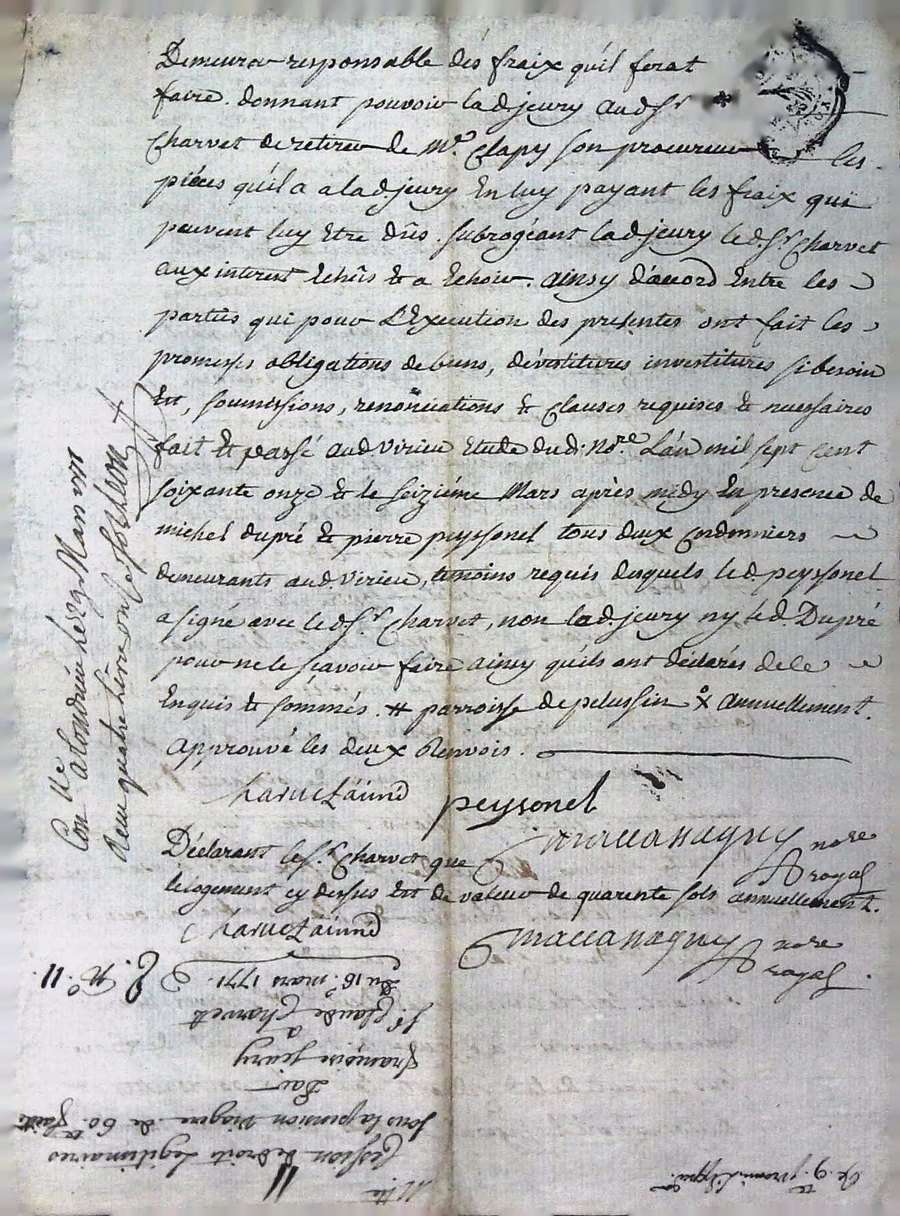 Demeurer responsable des fraix qu'il ferat
faire. donnant pouvoir lad. jeury aud. sr
Charvet de retirer de Me. Clapy son procureur les
piéces qu'il a a lad. jeury En luy payant les fraix qui
peuvent luy Etre dûs. subrogéant lad. jeury led. sr. Charvet
aux interest Echûs Et a Echoir. ainsy d'accord Entre les
parties qui pour L'Execution des presentes ont fait les
promesses obligations de biens, dévestitures investitures si besoin
Est, soumissions, renonciations Et Clauses requises Et necessaires
fait Et passé aud. Virieu Etude dud. nore. L'an mil sept cent
soixante onze Et le seiziéme Mars après midy En presence de
michel dupré Et pierre peyssonel tous deux Cordonniers
demeurants aud. Virieu, temoins requis desquels led. peyssonel
a signé avec led. sr. Charvet, non lad. jeury ny led. Dupré
pour ne le sçavoir faire ainsy qu'ils ont déclarés de ce
Enquis Et sommés. # parroisse de pelussin X annuellement.
Approuvé les deux Renvois.
Charvet L'ainé peyssonel
nore
royal
Déclarant le sr. Charvet que
le logement cy dessus Est de valeur de quarente sols annuellement.
Charvet L'ainé
nore
royal
Con. lle a Condrieu le 29 Mars 1771
Reçu quatre livres onze sols
E No. 11
Du 16e. mars 1771.
sr. Claude Charvet
a
françoise jeury
Par
sous la pension viagere de 60
Cession de droits Legitimaires